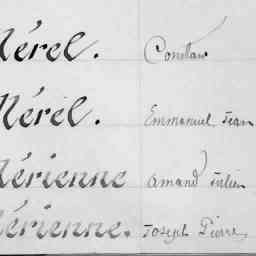 Mérel. Constant
Mérel. Emmanuel Jean
Mérienne Amand Julien
Mérienne. Joseph Pierre